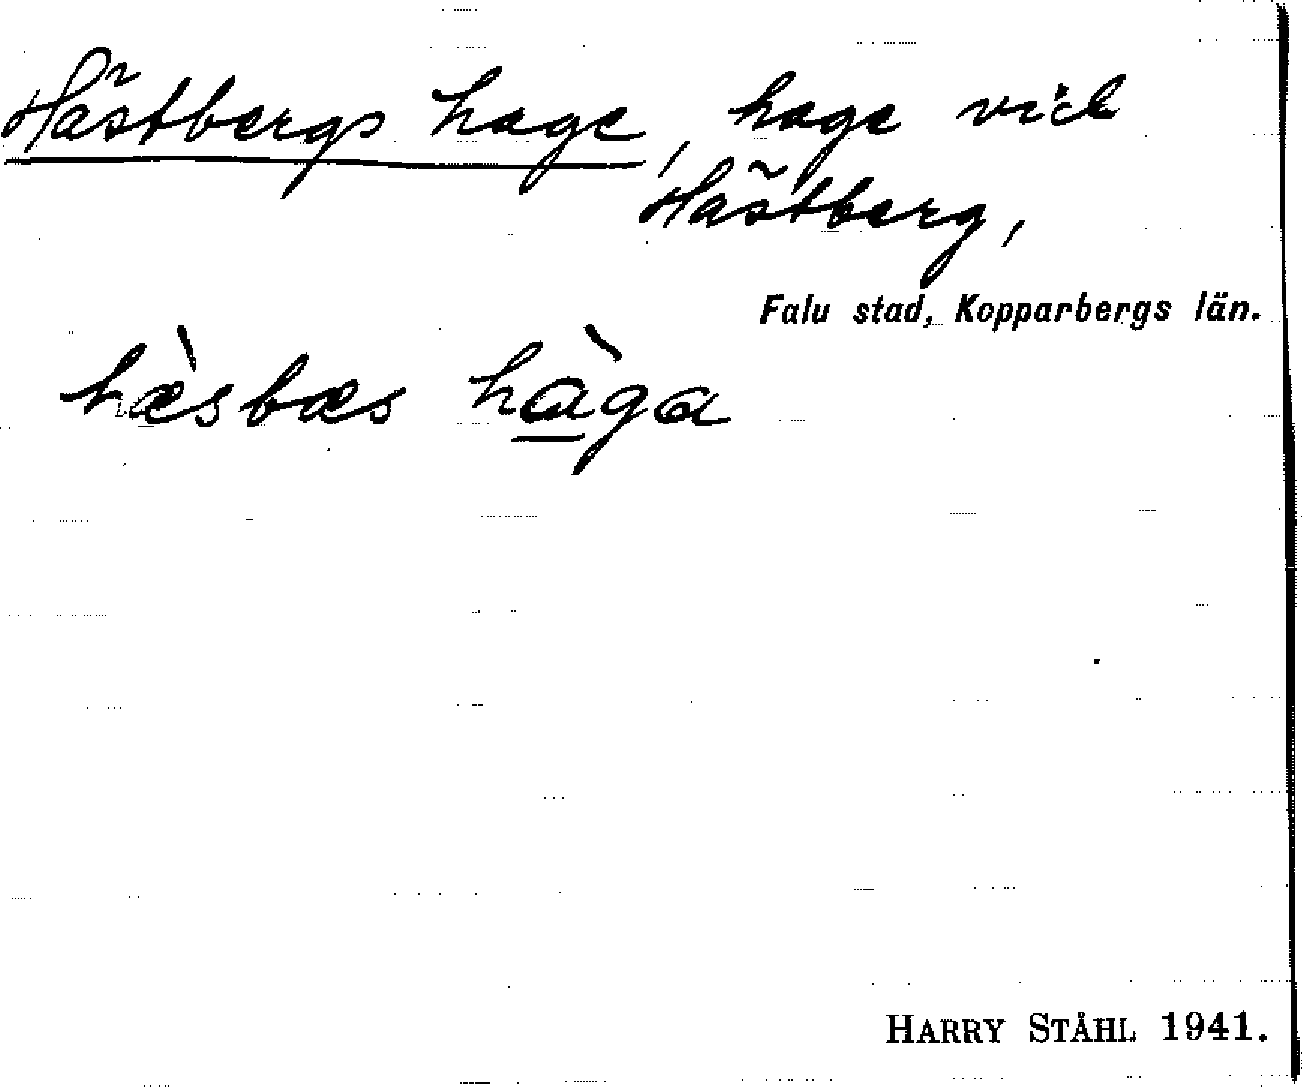 Hästbergs hage, hage vid
Hästberg,
Falu stad, Kopparbergs län.
hæ̀sbæs hàga
HARRY STÅHL 1941.